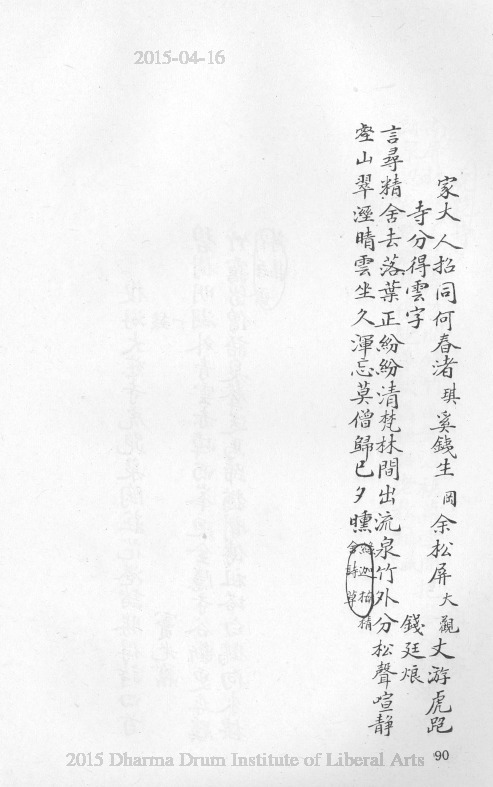 2015-04-16
家大人招同何春渚琪奚鐵生岡余松屏大觀丈游虎跑
寺分得雲字
錢廷烺
言尋精舍去落葉正紛紛清梵林間出流泉竹外分松聲喧靜
壑山翠溼晴雲坐久渾忘莫僧歸已夕曛
緑迦楞精
舍詩草
2015 Dharma Drum Institute of Liberal Arts
90